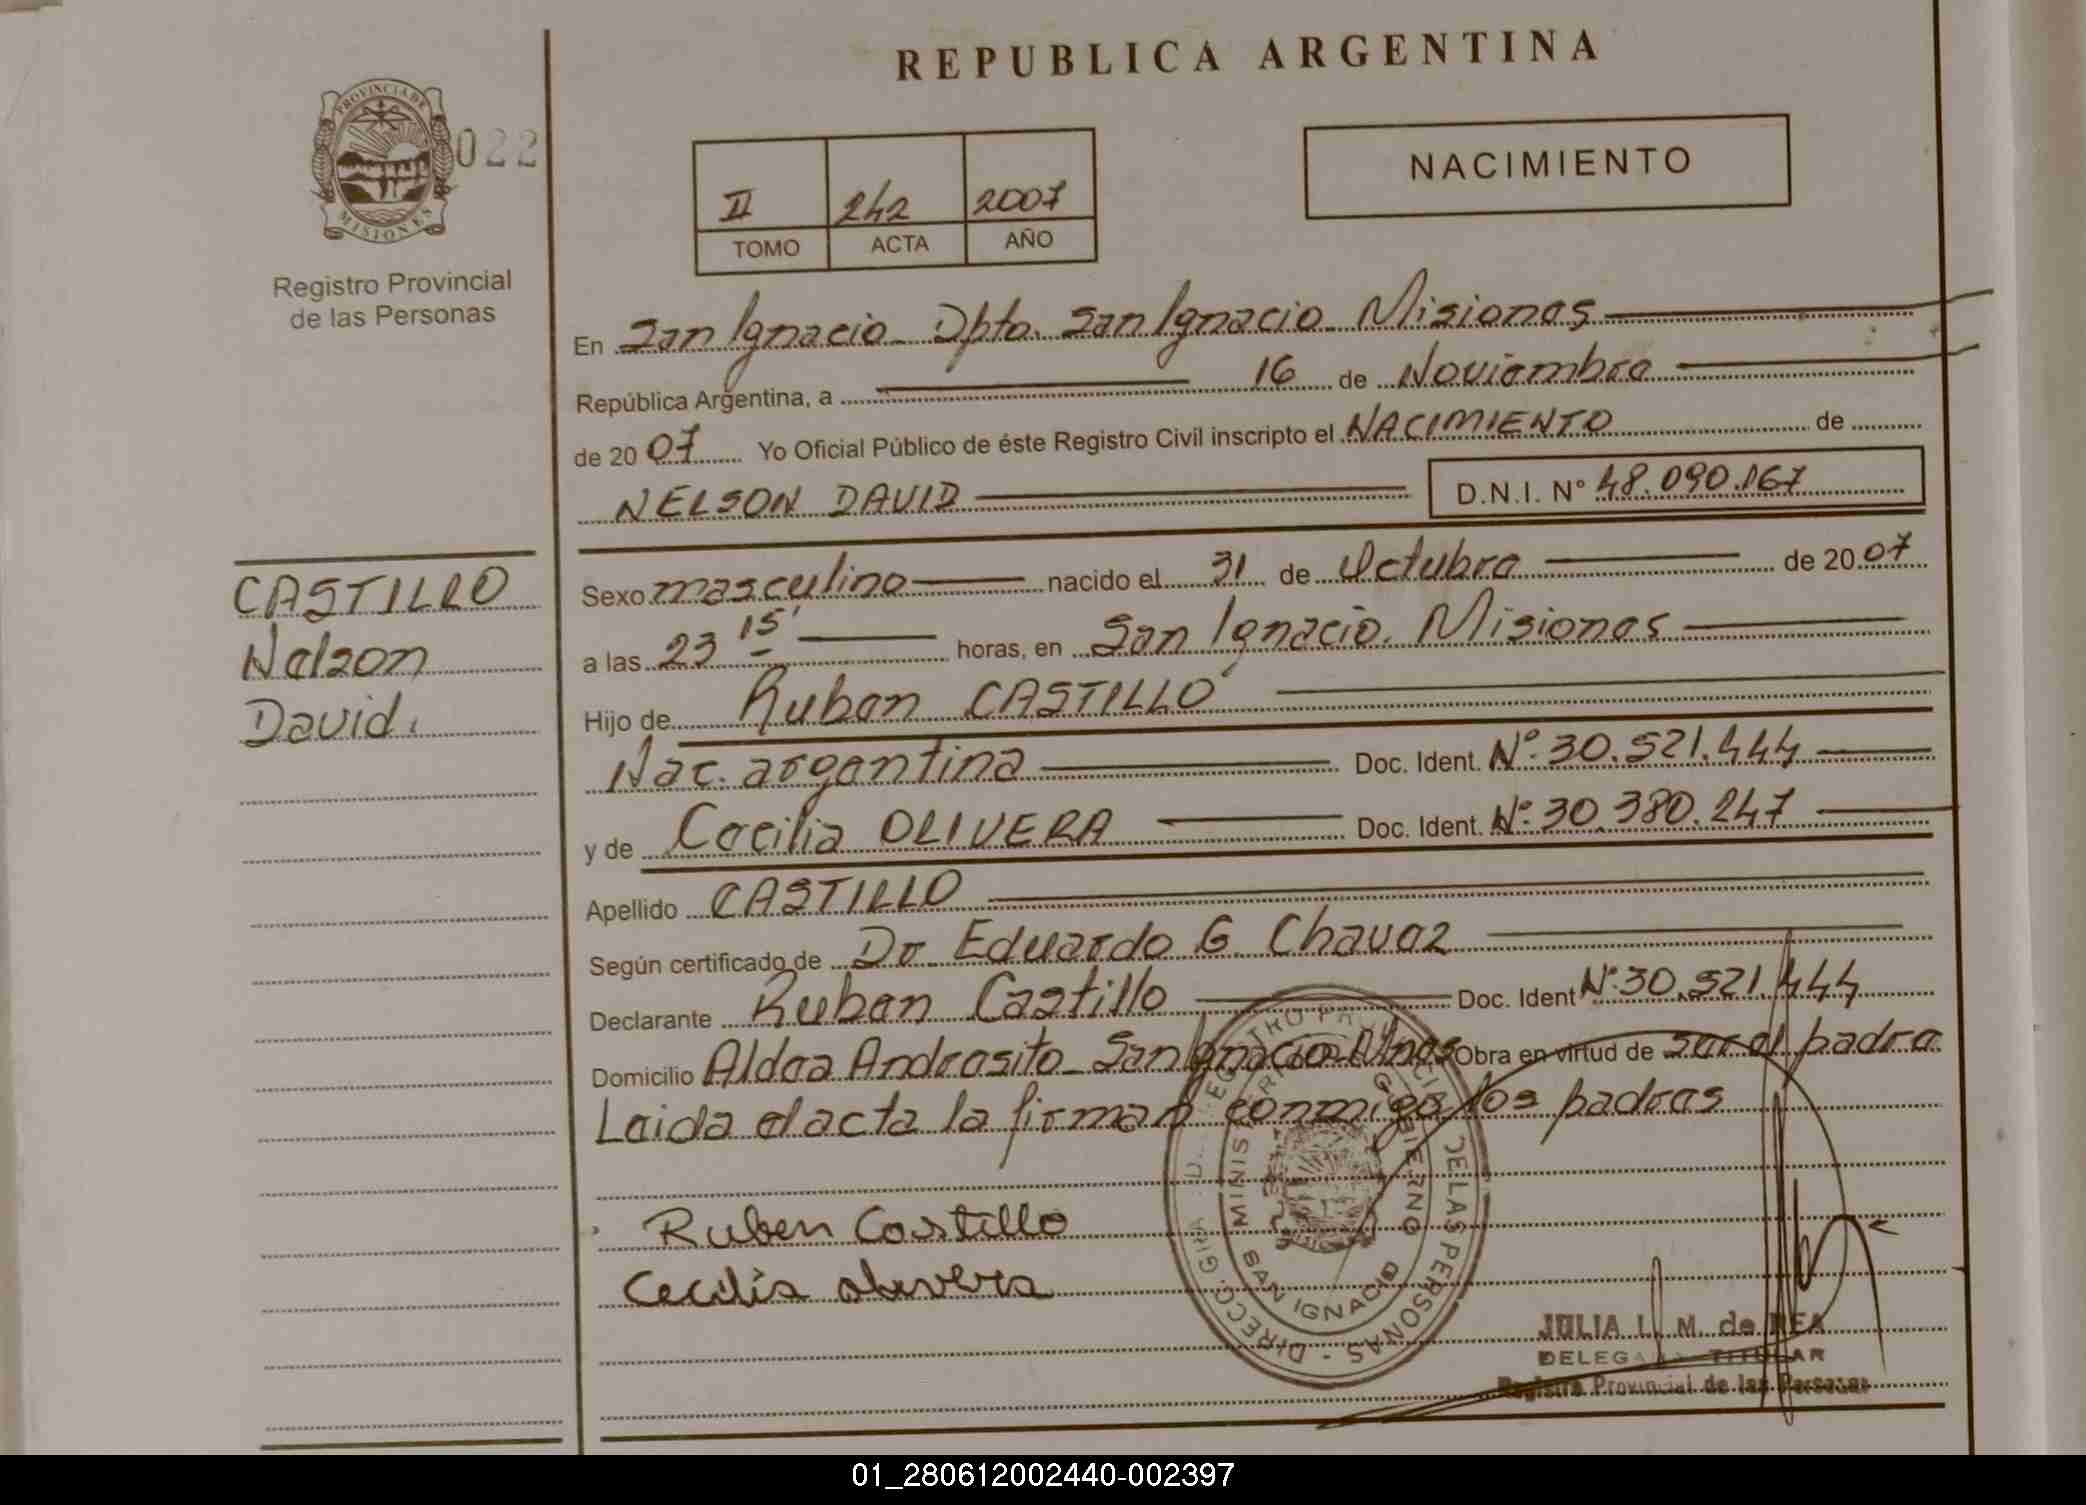 REPUBLICA ARGENTINA
PROVINCIA DE
MISIONES
022
Registro Provincial
de las Personas
II 242 2007
TOMO ACTA AÑO
NACIMIENTO
En San Ignacio - Dpto. San Ignacio - Misiones
República Argentina, a 16 de Noviembre
de 2007 Yo Oficial Público de éste Registro Civil inscripto el NACIMIENTO de
NELSON DAVID D.N.I. N° 48.090.167
CASTILLO
Nelson
David.
Sexo masculino nacido el 31 de Octubre de 2007
a las 23 15' horas, en San Ignacio. Misiones
Hijo de Ruben CASTILLO
Nac. argentina Doc. Ident. N°. 30.521.444
y de Cecilia OLIVERA Doc. Ident. N°. 30.380.247
Apellido CASTILLO
Según certificado de Dr. Eduardo G. Chavez
Declarante Ruben Castillo Doc. Ident N°. 30.521.444
Domicilio Aldea Andresito - San Ignacio - Mnes Obra en virtud de ser el padre
Leida el acta la firman conmigo los padres
Ruben Castillo
Cecilia olivera
DE LAS PERSONAS - DIRECC. GRAL.
GOBIERNO
SAN IGNACIO
JULIA I. M. de REA
DELEGADA TITULAR
Registro Provincial de las Personas
01_280612002440-002397